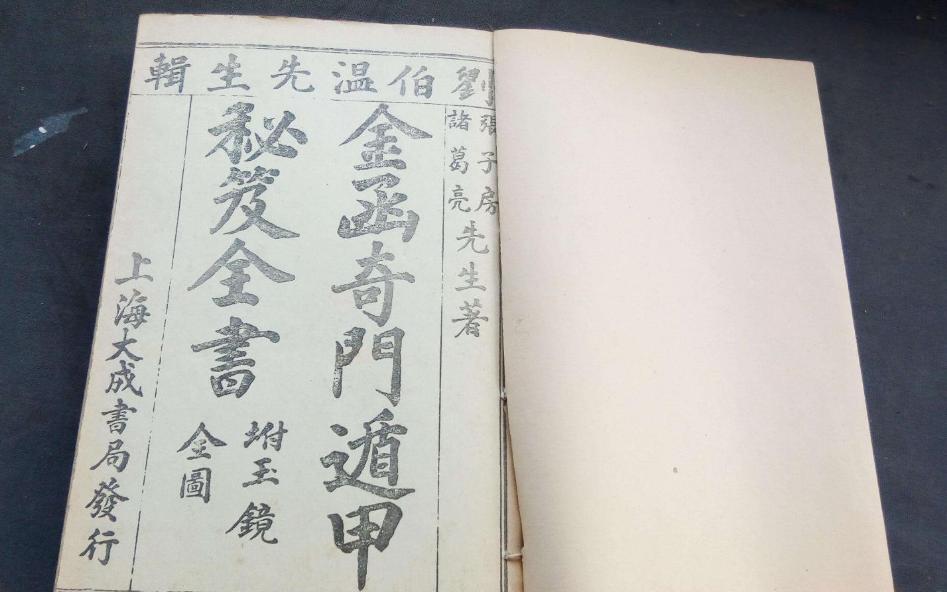 劉伯温先生輯
張子房
諸葛亮
先生著
金函奇門遁甲
秘笈全書
坿玉鏡
全圖
上海大成書局發行